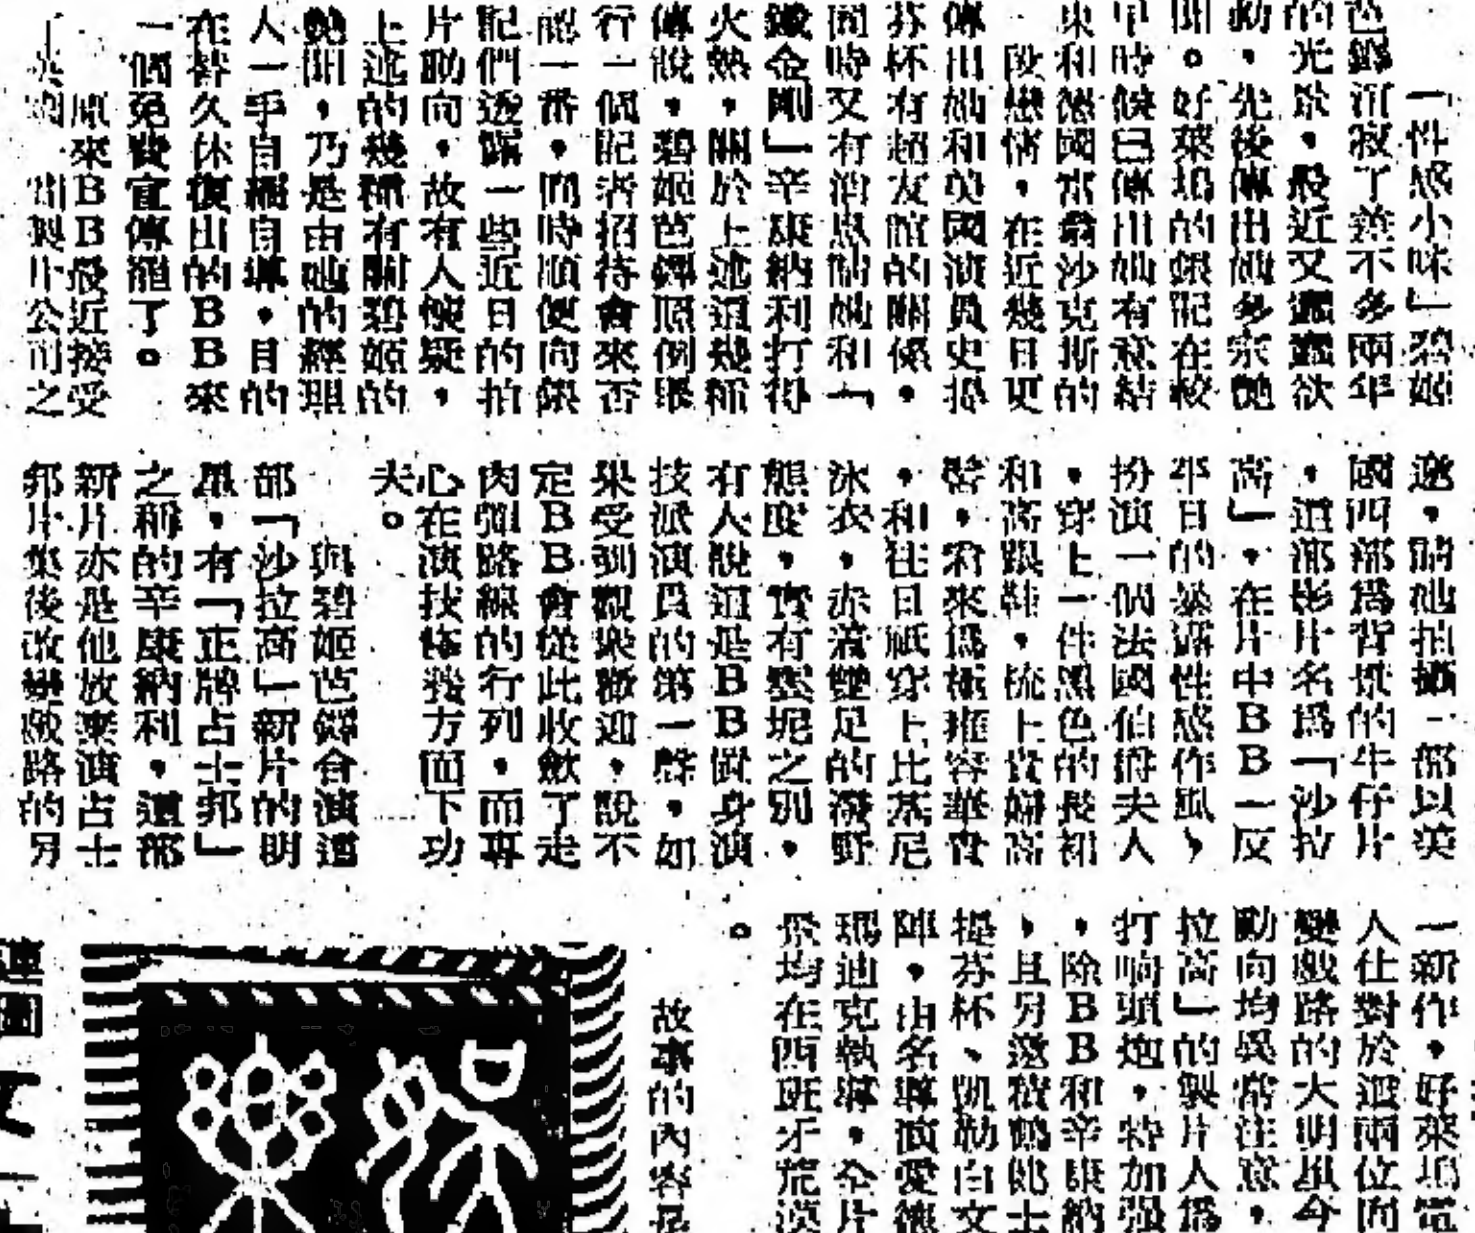 一性感小咪」碧姬
色鐸沉寂了差不多兩年
的光景，最近又蠢蠢欲
動，先後傳出她多宗艷
聞。好萊塢的銀記在較
早時候已傳出她有意結
束和德國富翁沙克斯的
一段戀情，在近幾日更
傳出她和英國演員史提
芬杯有超友誼的關係，
同時又有消息謂她和「
鐵金剛」辛康納利打得
火熱，關於上述這幾種
傳說，碧姬芭鐸照例舉
行一個記者招待會來否
認一番，同時順便向銀
記們透露一些近日的拍
片動向，故有人懷疑，
上述的幾種有關碧姬的
艷聞，乃是由她的經理
人一手自編自導，目的
在替久休復出的BB來
一個免費宣傳罷了。
原來BB最近接受
了英國 製片公司之
邀，請她拍攝一部以美
國西部為背景的牛仔片
，這部影片名為「沙拉
高」，在片中BB一反
平日的暴露性感作風，
扮演一個法國伯爵夫人
，穿上一件黑色的長裙
和高跟鞋，梳上貴婦高
髻，看來為極雍容華貴
，和往日祇穿上比基尼
泳衣，赤着雙足的潑野
態度，實有雲坭之別，
有人說這是BB置身演
技派演員的第一聲，如
果受到觀衆歡迎，說不
定BB會從此收歛了走
肉彈路線的行列，而專
心在演技修養方面下功
夫。
與碧姬芭鐸合演這
部「沙拉高」新片的明
星，有「正牌占士邦」
之稱的辛康納利，這部
新片亦是他放棄演占士
邦片集後改變戲路的另
一新作，好萊塢電
人仕對於這兩位同
變戲路的大明星今
動向均異常注意，
拉高」的製片人為
打响頭炮，特加强
，除BB和辛康納
，且另邀積鶴健士
提芬杯、凱勒白文
陣，由名導演愛德
瑪迪克執導，全片
景均在西班牙荒漠
。
故事的內容是